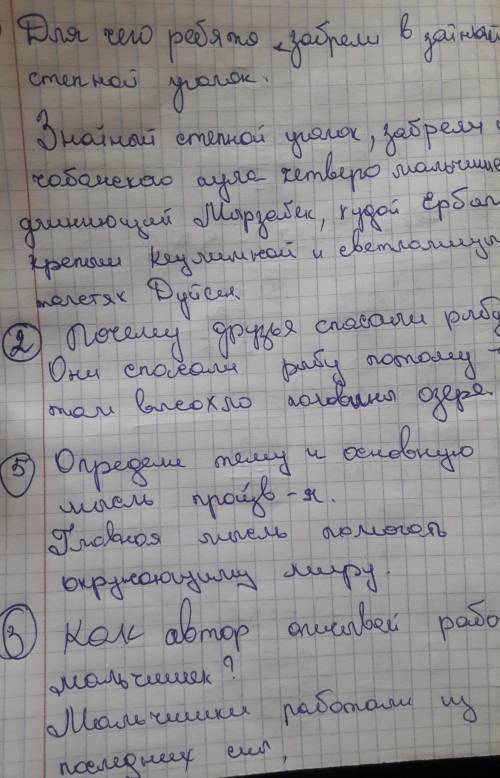 Для чего ребята забрели в зайный
степной уголок.
Знойный степной уголок, забрели
чабанского аула четверо мальчише
длинющий Мырзабек, худой Ербол
крепыш и светлолицый
толстяк Дуйсен
2 Почему друзья спасали рыбу
Они спасали рыбу потому
там высохло половины озера.
5 Определи тему и основную
мысль произв-я.
Главная мысль помогать
окружающиму миру.
3 Как автор описывай рабо
мальчишек?
Мальчишки работали из
последних сил,